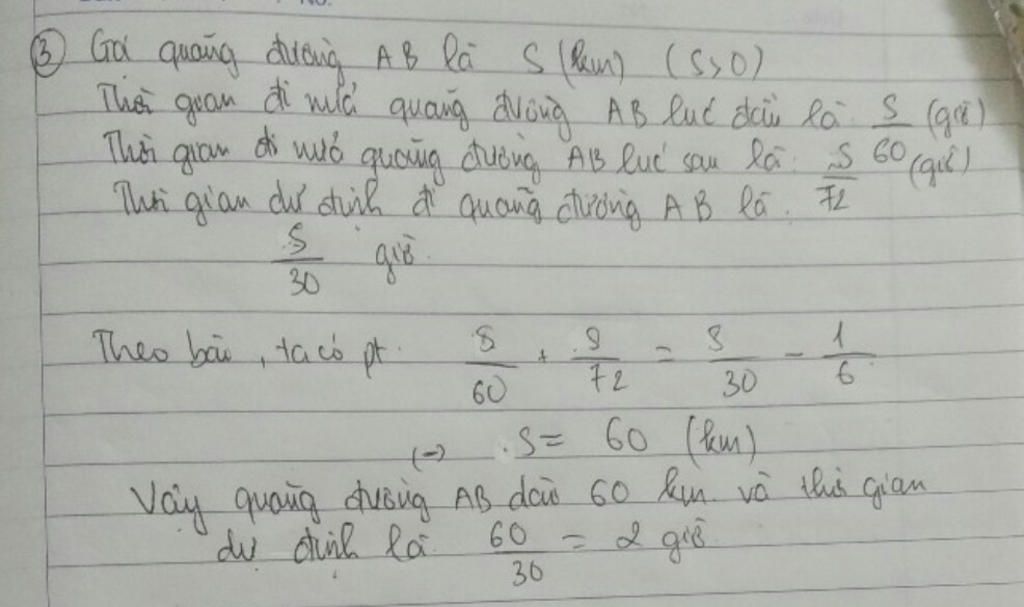 ③ Gọi quãng đường AB là S (km) (S>0)
Thời gian đi nửa quãng đường AB lúc đầu là S/60 (giờ)
Thời gian đi nửa quãng đường AB lúc sau là S/72 (giờ)
Thời gian dự định đi quãng đường AB là
S/30 giờ.
Theo bài, ta có pt. S/60 + S/72 = S/30 - 1/6
(→) S = 60 (km)
Vậy quãng đường AB dài 60 km và thời gian
dự định là 60/30 = 2 giờ